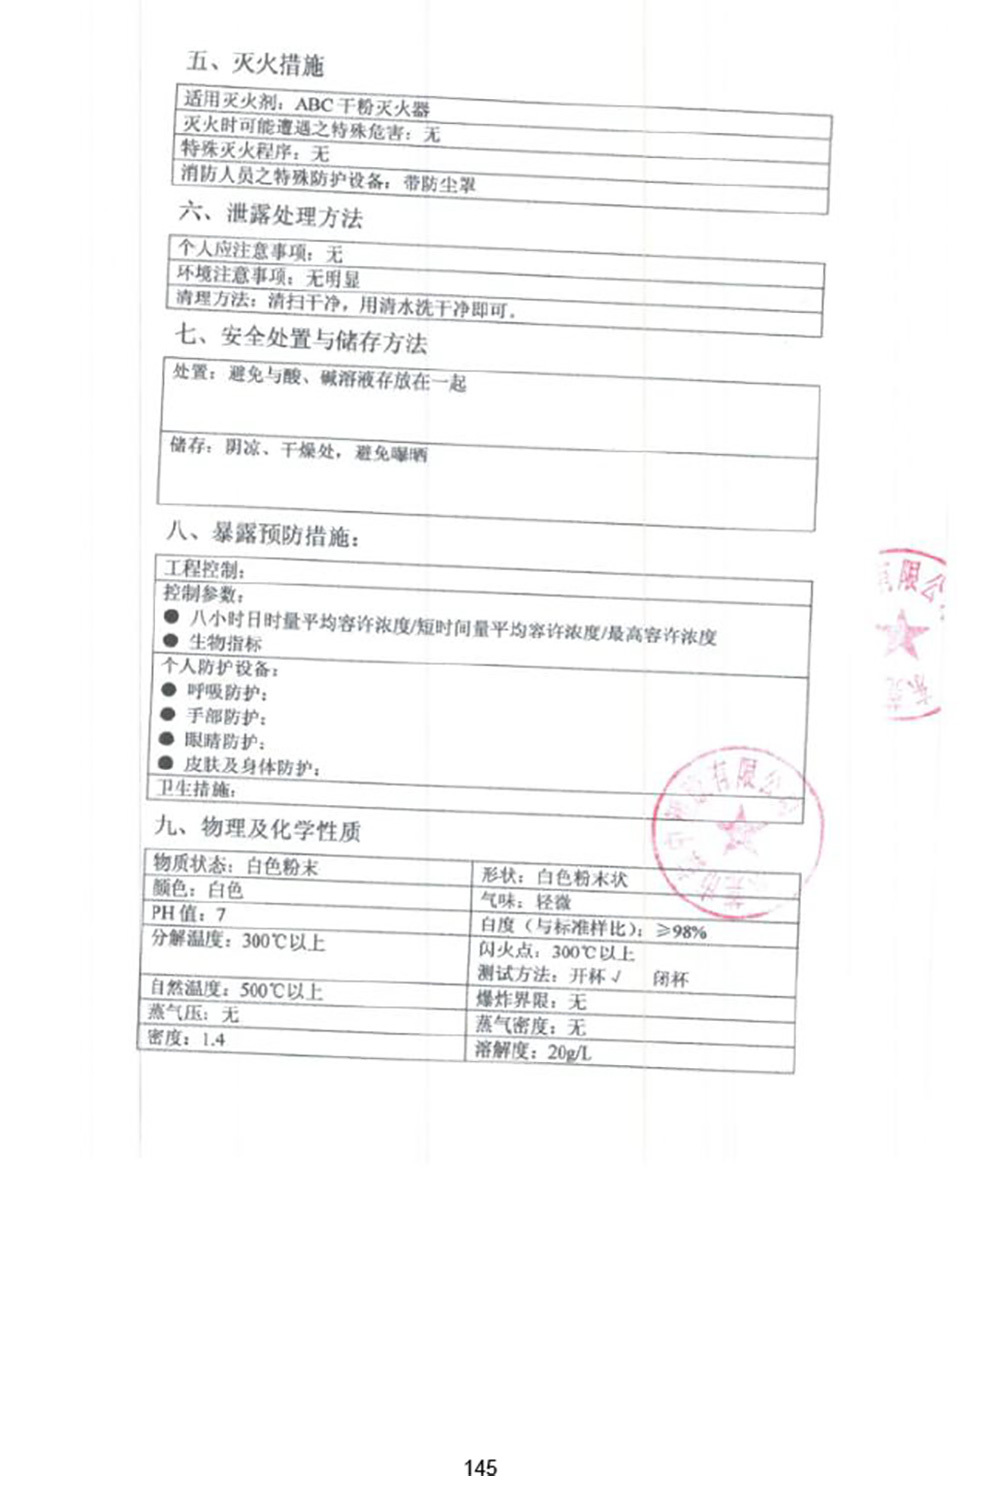 五、灭火措施
适用灭火剂：ABC干粉灭火器
灭火时可能遭遇之特殊危害：无
特殊灭火程序：无
消防人员之特殊防护设备：带防尘罩
六、泄露处理方法
个人应注意事项：无
环境注意事项：无明显
清理方法：清扫干净，用清水洗干净即可。
七、安全处置与储存方法
处置：避免与酸、碱溶液存放在一起
储存：阴凉、干燥处，避免曝晒
八、暴露预防措施：
工程控制：
控制参数：
● 八小时日时量平均容许浓度/短时间量平均容许浓度/最高容许浓度
● 生物指标
个人防护设备：
● 呼吸防护：
● 手部防护：
● 眼睛防护：
● 皮肤及身体防护：
卫生措施：
有限公
有限公
九、物理及化学性质
物质状态：白色粉末
形状：白色粉末状
颜色：白色
气味：轻微
PH值：7
白度（与标准样比）：≥98%
分解温度：300℃以上
闪火点：300℃以上
测试方法：开杯√ 闭杯
自然温度：500℃以上
爆炸界限：无
蒸气压：无
蒸气密度：无
密度：1.4
溶解度：20g/L
145